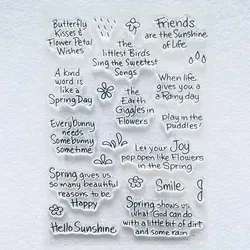 Butterfly
Kisses &
Flower Petal
Wishes
Friends
are the Sunshine
of Life
The
littlest Birds
Sing the Sweetest
Songs
A kind
word is
like a
Spring Day
When life
gives you a
Rainy day
Play in the
puddles!
The
Earth
Giggles in
Flowers
Every bunny
needs
Some bunny
sometime
Let your Joy
pop open like Flowers
in the Spring
Spring gives us
so many beautiful
reasons to be
Happy
Smile
Spring shows us
what God can do
with a little bit of dirt
and some rain
Hello Sunshine